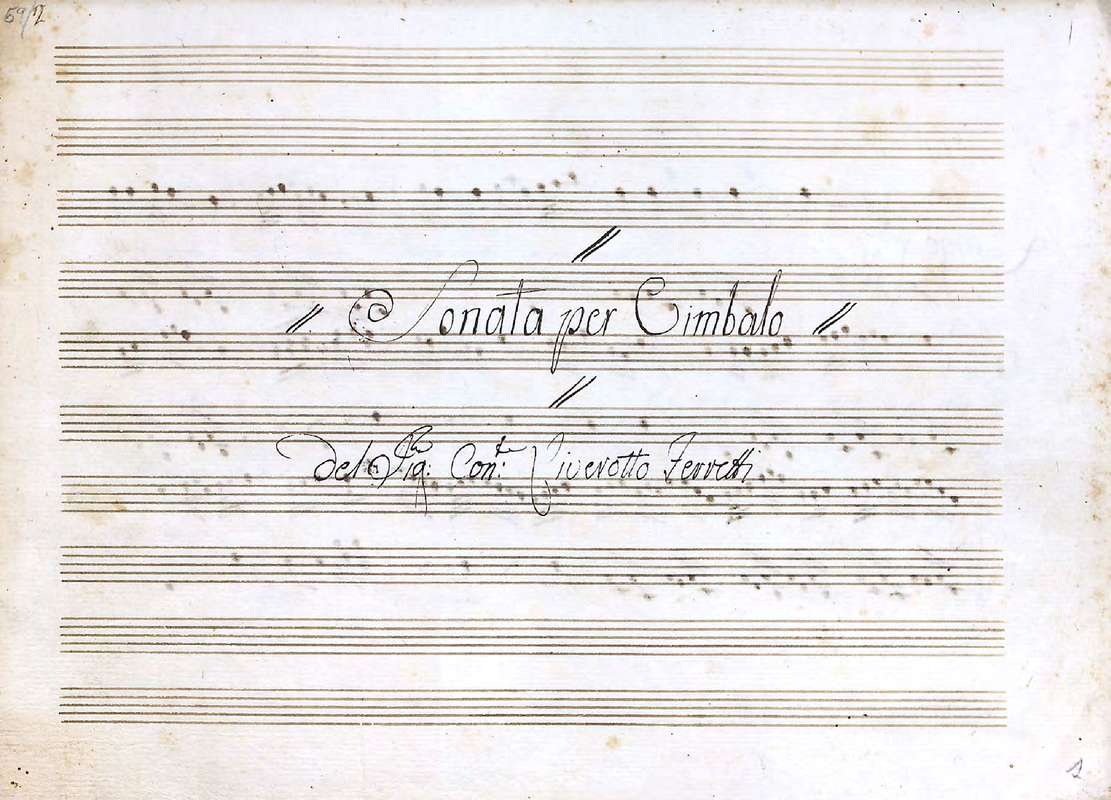 59/2
1
Sonata per Cimbalo
Del Sig:re Con:te Liverotto Ferretti
1